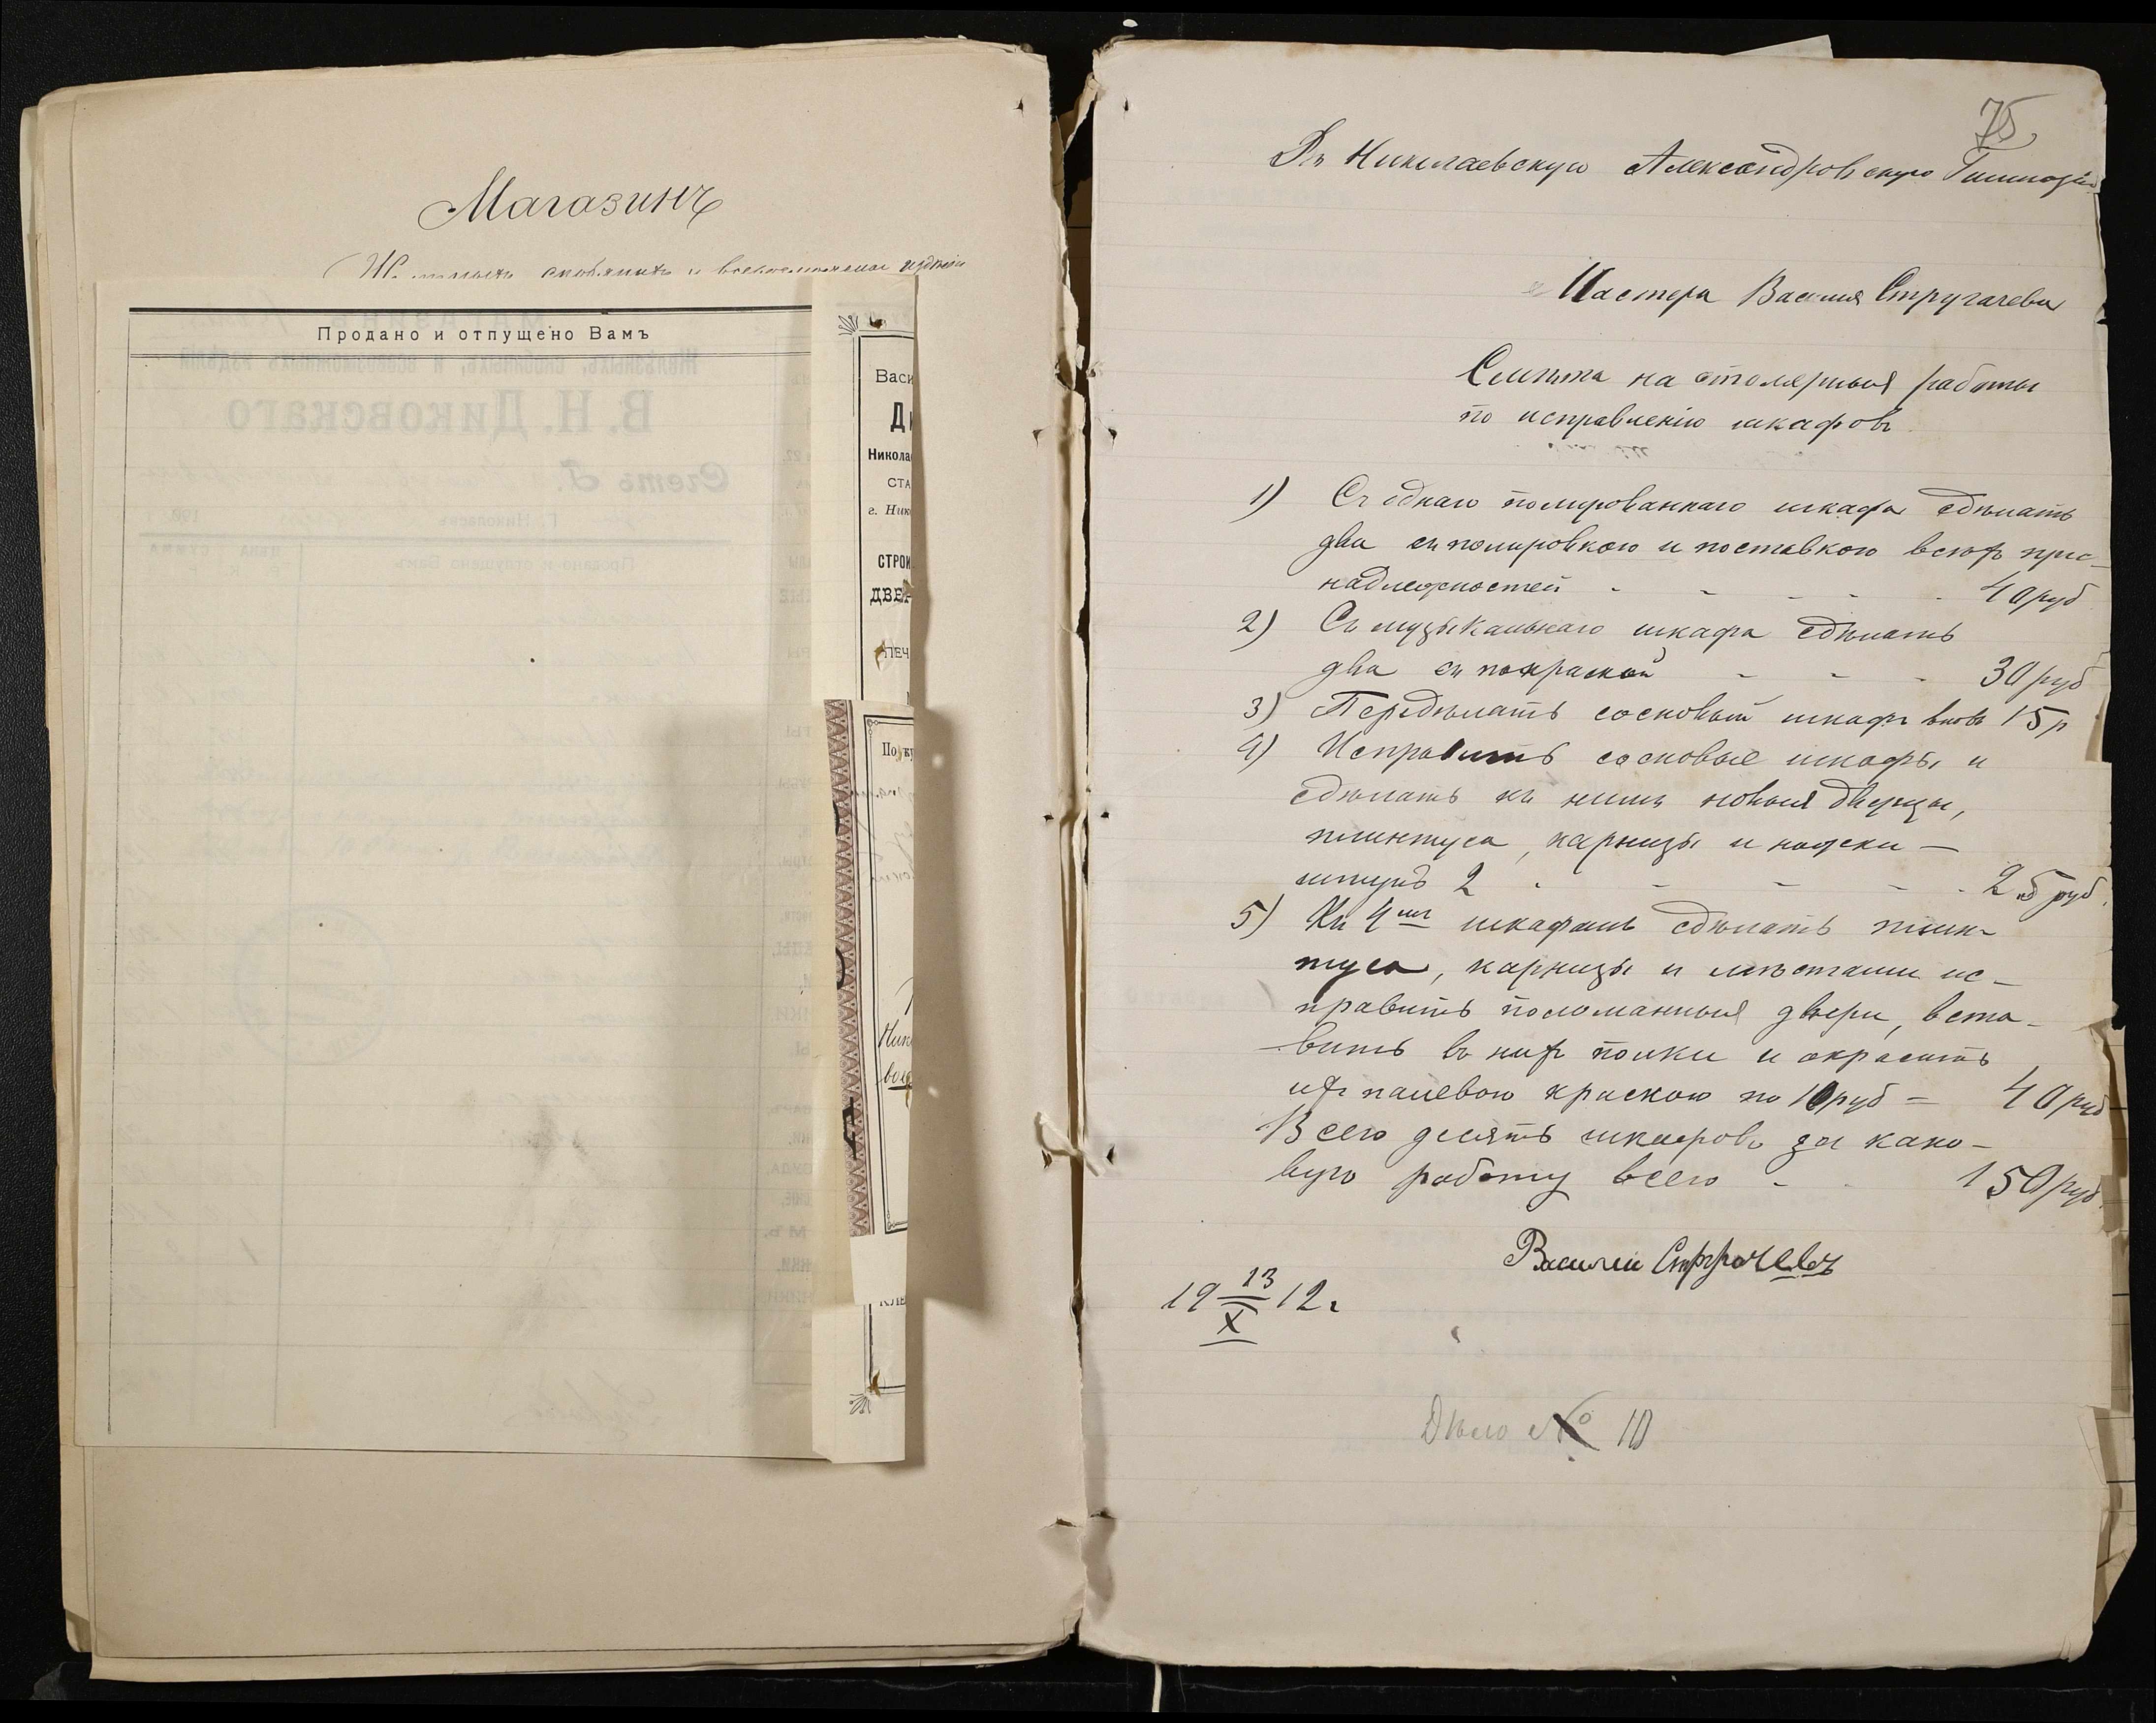 Магазинъ
скобяныхъ и всевозможныхъ издѣлій
Продано и отпущено Вамъ
Васи
Ди
Никола
СТА
г. Ник
СТРОИ
ДВЕР
ПЕЧ
По ку
Ник
КЛЕ
75
Въ Николаевскую Александровскую Гимназію
Мастера Василія Стругачева
Смѣта на столярныя работы
по исправленію шкафовъ
1) Съ однаго полированнаго шкафа сдѣлать
два съ полировкою и поставкою всѣхъ при-
надлежностей - - - - - 40 руб
2) Съ музыкальнаго шкафа сдѣлать
два съ покраской - - - 30 руб
3) Передѣлать сосновый шкафъ вновь 15 р
4) Исправить сосновые шкафы и
сдѣлать къ нимъ новыя дверцы,
плинтуса, карнизы и
штукъ 2 - - - - - 25 руб.
5) Къ 4мъ шкафамъ сдѣлать плин-
туса, карнизы и мѣстами ис-
править поломанныя двери, вста-
вить въ нихъ полки и окрасить
ихъ палевою краскою по 10 руб = 40 руб
Всего десять шкафовъ за како-
вую работу всего - - 150 руб.
Василий Стругачевъ
19 13/X 12 г
Дѣло № 10